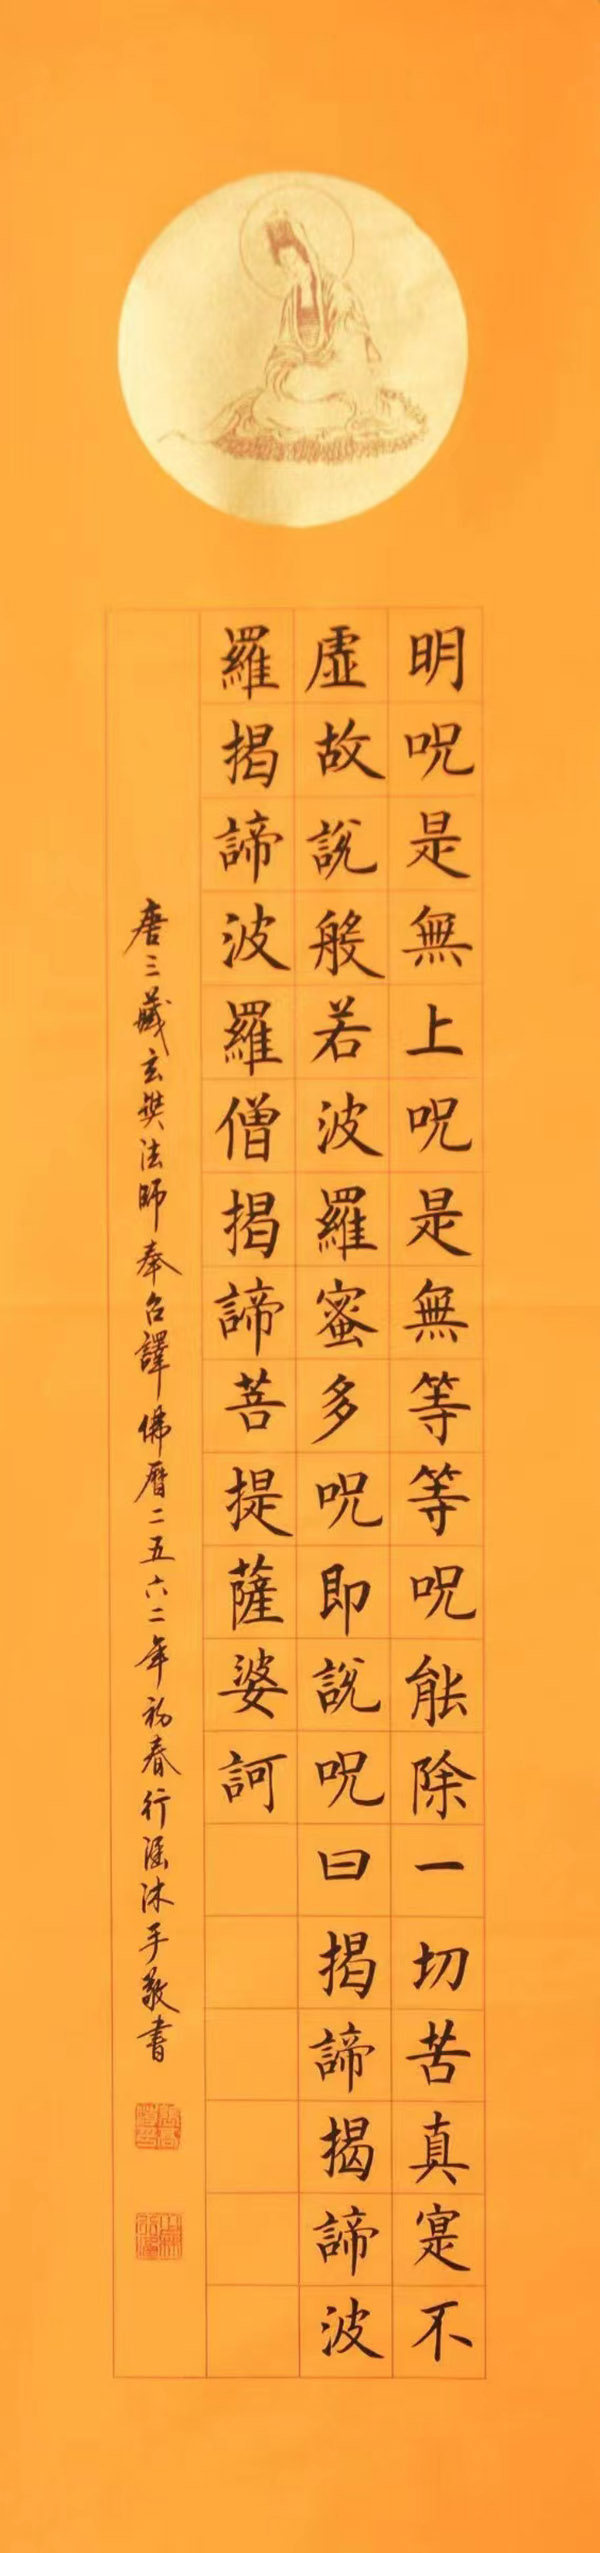 明呪是無上呪是無等等呪能除一切苦真寔不
虛故說般若波羅蜜多呪即說呪曰揭諦揭諦波
羅揭諦波羅僧揭諦菩提薩婆訶
唐三藏玄奘法師奉召譯佛曆二五六二年初春行涵沐手敬書